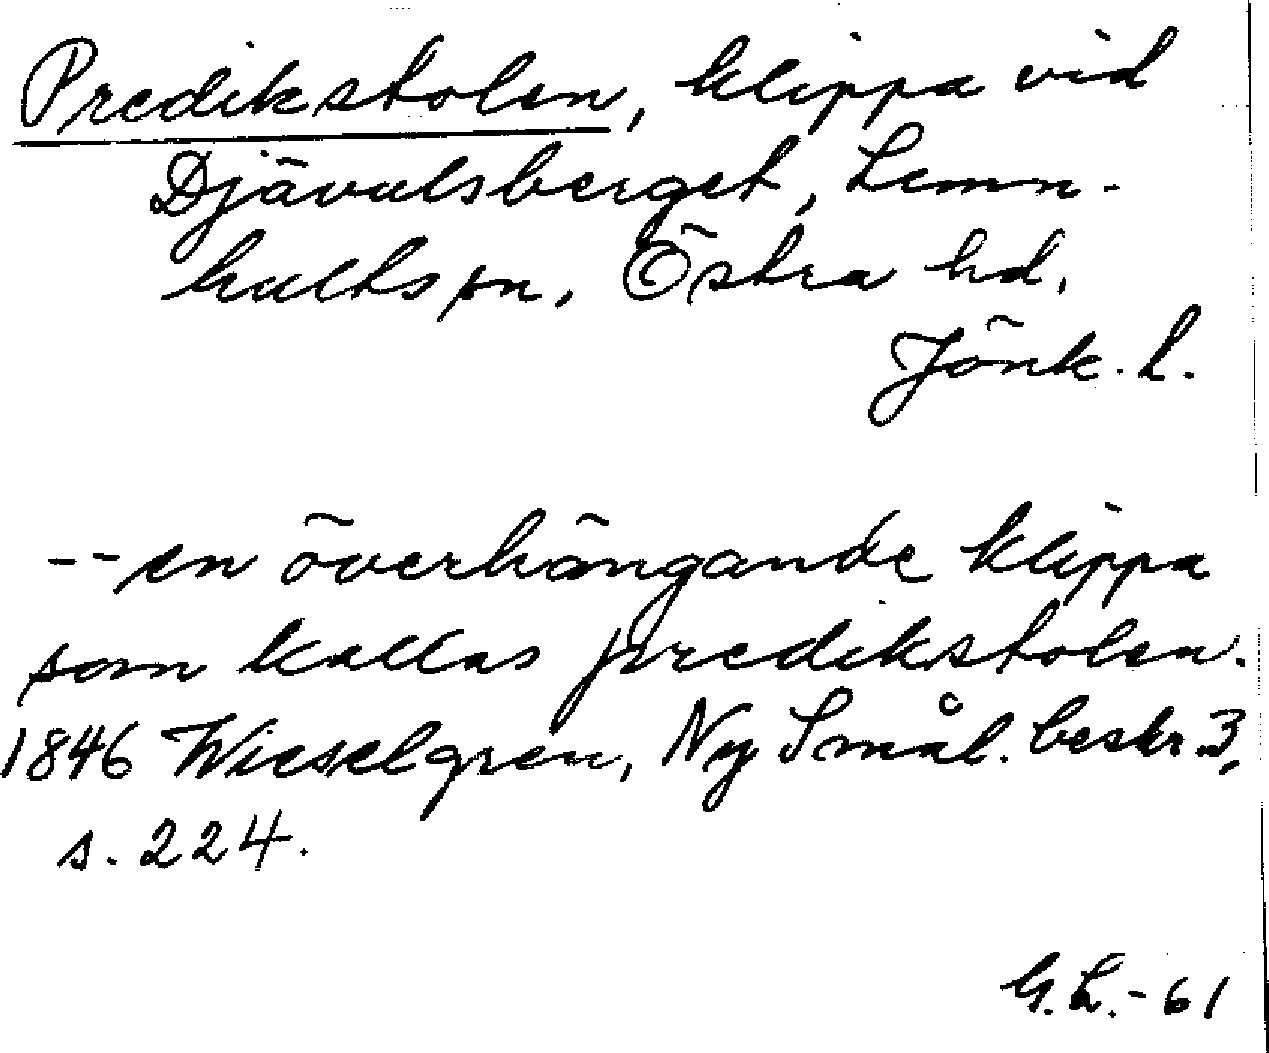 Predikstolen, klippa vid
Djävulsberget, Lemn-
hults sn, Östra hd,
Jönk. L.
-- en överhängande klippa
som kallas predikstolen.
1846 Wieselgren, Ny Smål. beskr 3,
s. 224.
G. L. - 61